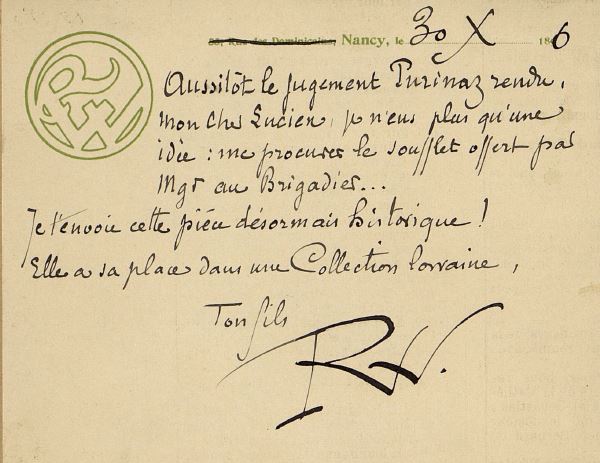 35, Rue des Dominicains, Nancy, le 30 X 6
Aussitôt le jugement Turinaz rendu,
mon cher Lucien, je n'eus plus qu'une
idée : me procurer le soufflet offert par
Mgr au Brigadier...
Je t'envoie cette pièce désormais historique !
Elle a sa place dans une Collection lorraine,
Ton fils
RW.